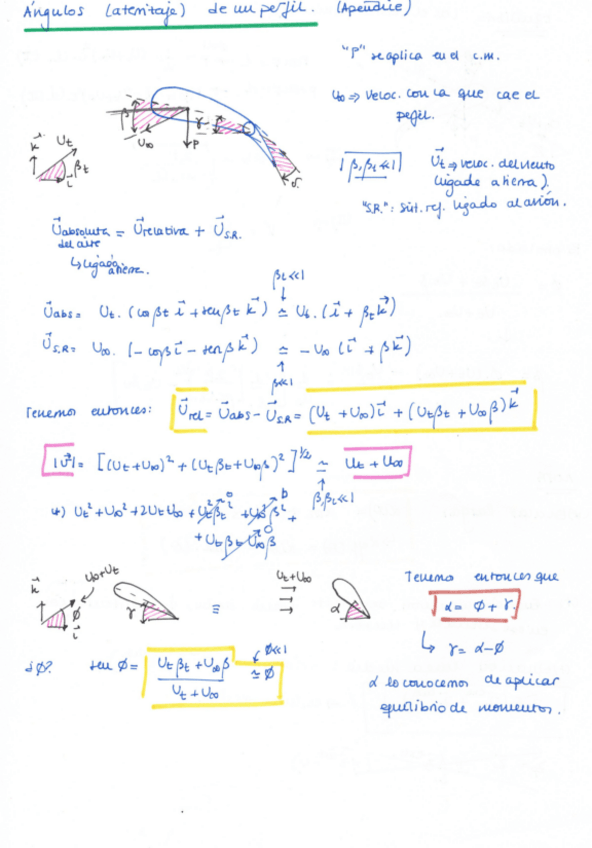 Ángulos (aterrizaje) de un perfil. (Apéndice)
"P" se aplica en el c.m.
U∞ ⇒ veloc. con la que cae el
perfil.
β U∞ P γ δ
k⃗ Ut βt i⃗
|β, βt ≪ 1|
U⃗t ⇒ veloc. del viento
(ligado a tierra).
"S.R.": sist. ref. ligado al avión.
U⃗absoluta del aire = U⃗relativa + U⃗S.R.
↳ ligada a tierra.
βt ≪ 1
U⃗abs = Ut · (cos βt i⃗ + sen βt k⃗) ≃ Ut · (i⃗ + βt k⃗)
U⃗S.R = U∞ · (− cos β i⃗ − sen β k⃗) ≃ − U∞ (i⃗ + β k⃗)
β ≪ 1
Tenemos entonces: U⃗rel = U⃗abs − U⃗S.R = (Ut + U∞) i⃗ + (Ut βt + U∞ β) k⃗
|U⃗| = [(Ut + U∞)² + (Ut βt + U∞ β)²]^1/2 ≃ Ut + U∞
β, βt ≪ 1
↳) Ut² + U∞² + 2 Ut U∞ + Ut² βt² + U∞² β² +
+ Ut βt U∞ β
k⃗ U∞ + Ut ϕ i⃗ γ ≡ Ut + U∞ α
Tenemos entonces que
α = ϕ + γ
↳ γ = α − ϕ
¿ϕ? sen ϕ = (Ut βt + U∞ β) / (Ut + U∞) ≃ ϕ
ϕ ≪ 1
α lo conocemos de aplicar
equilibrio de momentos.